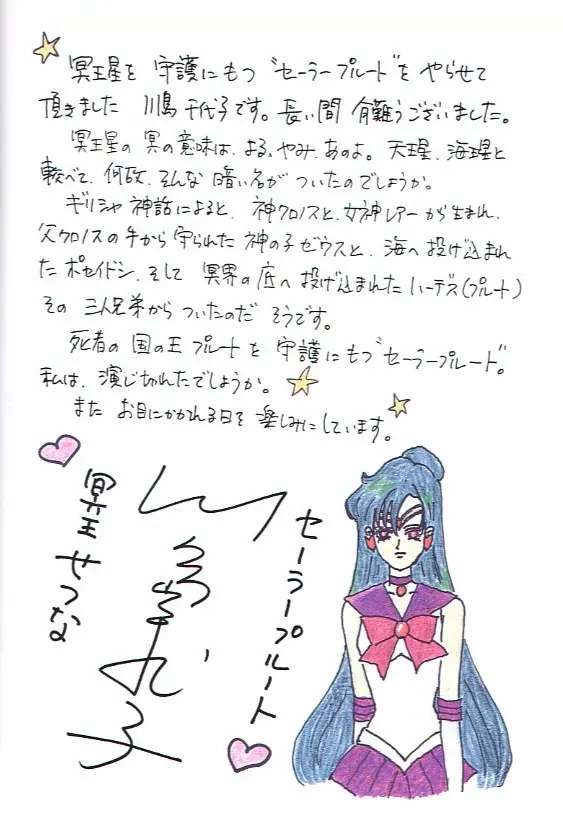 冥王星を 守護にもつ “セーラープルート” を やらせて
頂きました 川島 千代子です。長い間 有難うございました。
冥王星の 冥の意味は、よる、やみ、あのよ。天王星、海王星と
較べて、何故、そんな 暗い名が ついたのでしょうか。
ギリシャ 神話によると、神クロノスと、女神レアーから生まれ、
父クロノスの手から 守られた 神の子 ゼウスと、海へ 投げ込まれ
た ポセイドン、そして 冥界の 底へ 投げ込まれた ハーデス(プルート)
その 三人兄弟から ついたのだ そうです。
死者の 国の王 プルートを 守護にもつ “セーラープルート”。
私は、演じ切れたでしょうか。
また お目にかかれる日を 楽しみにしています。
セーラープルート
川島千代子
冥王せつな